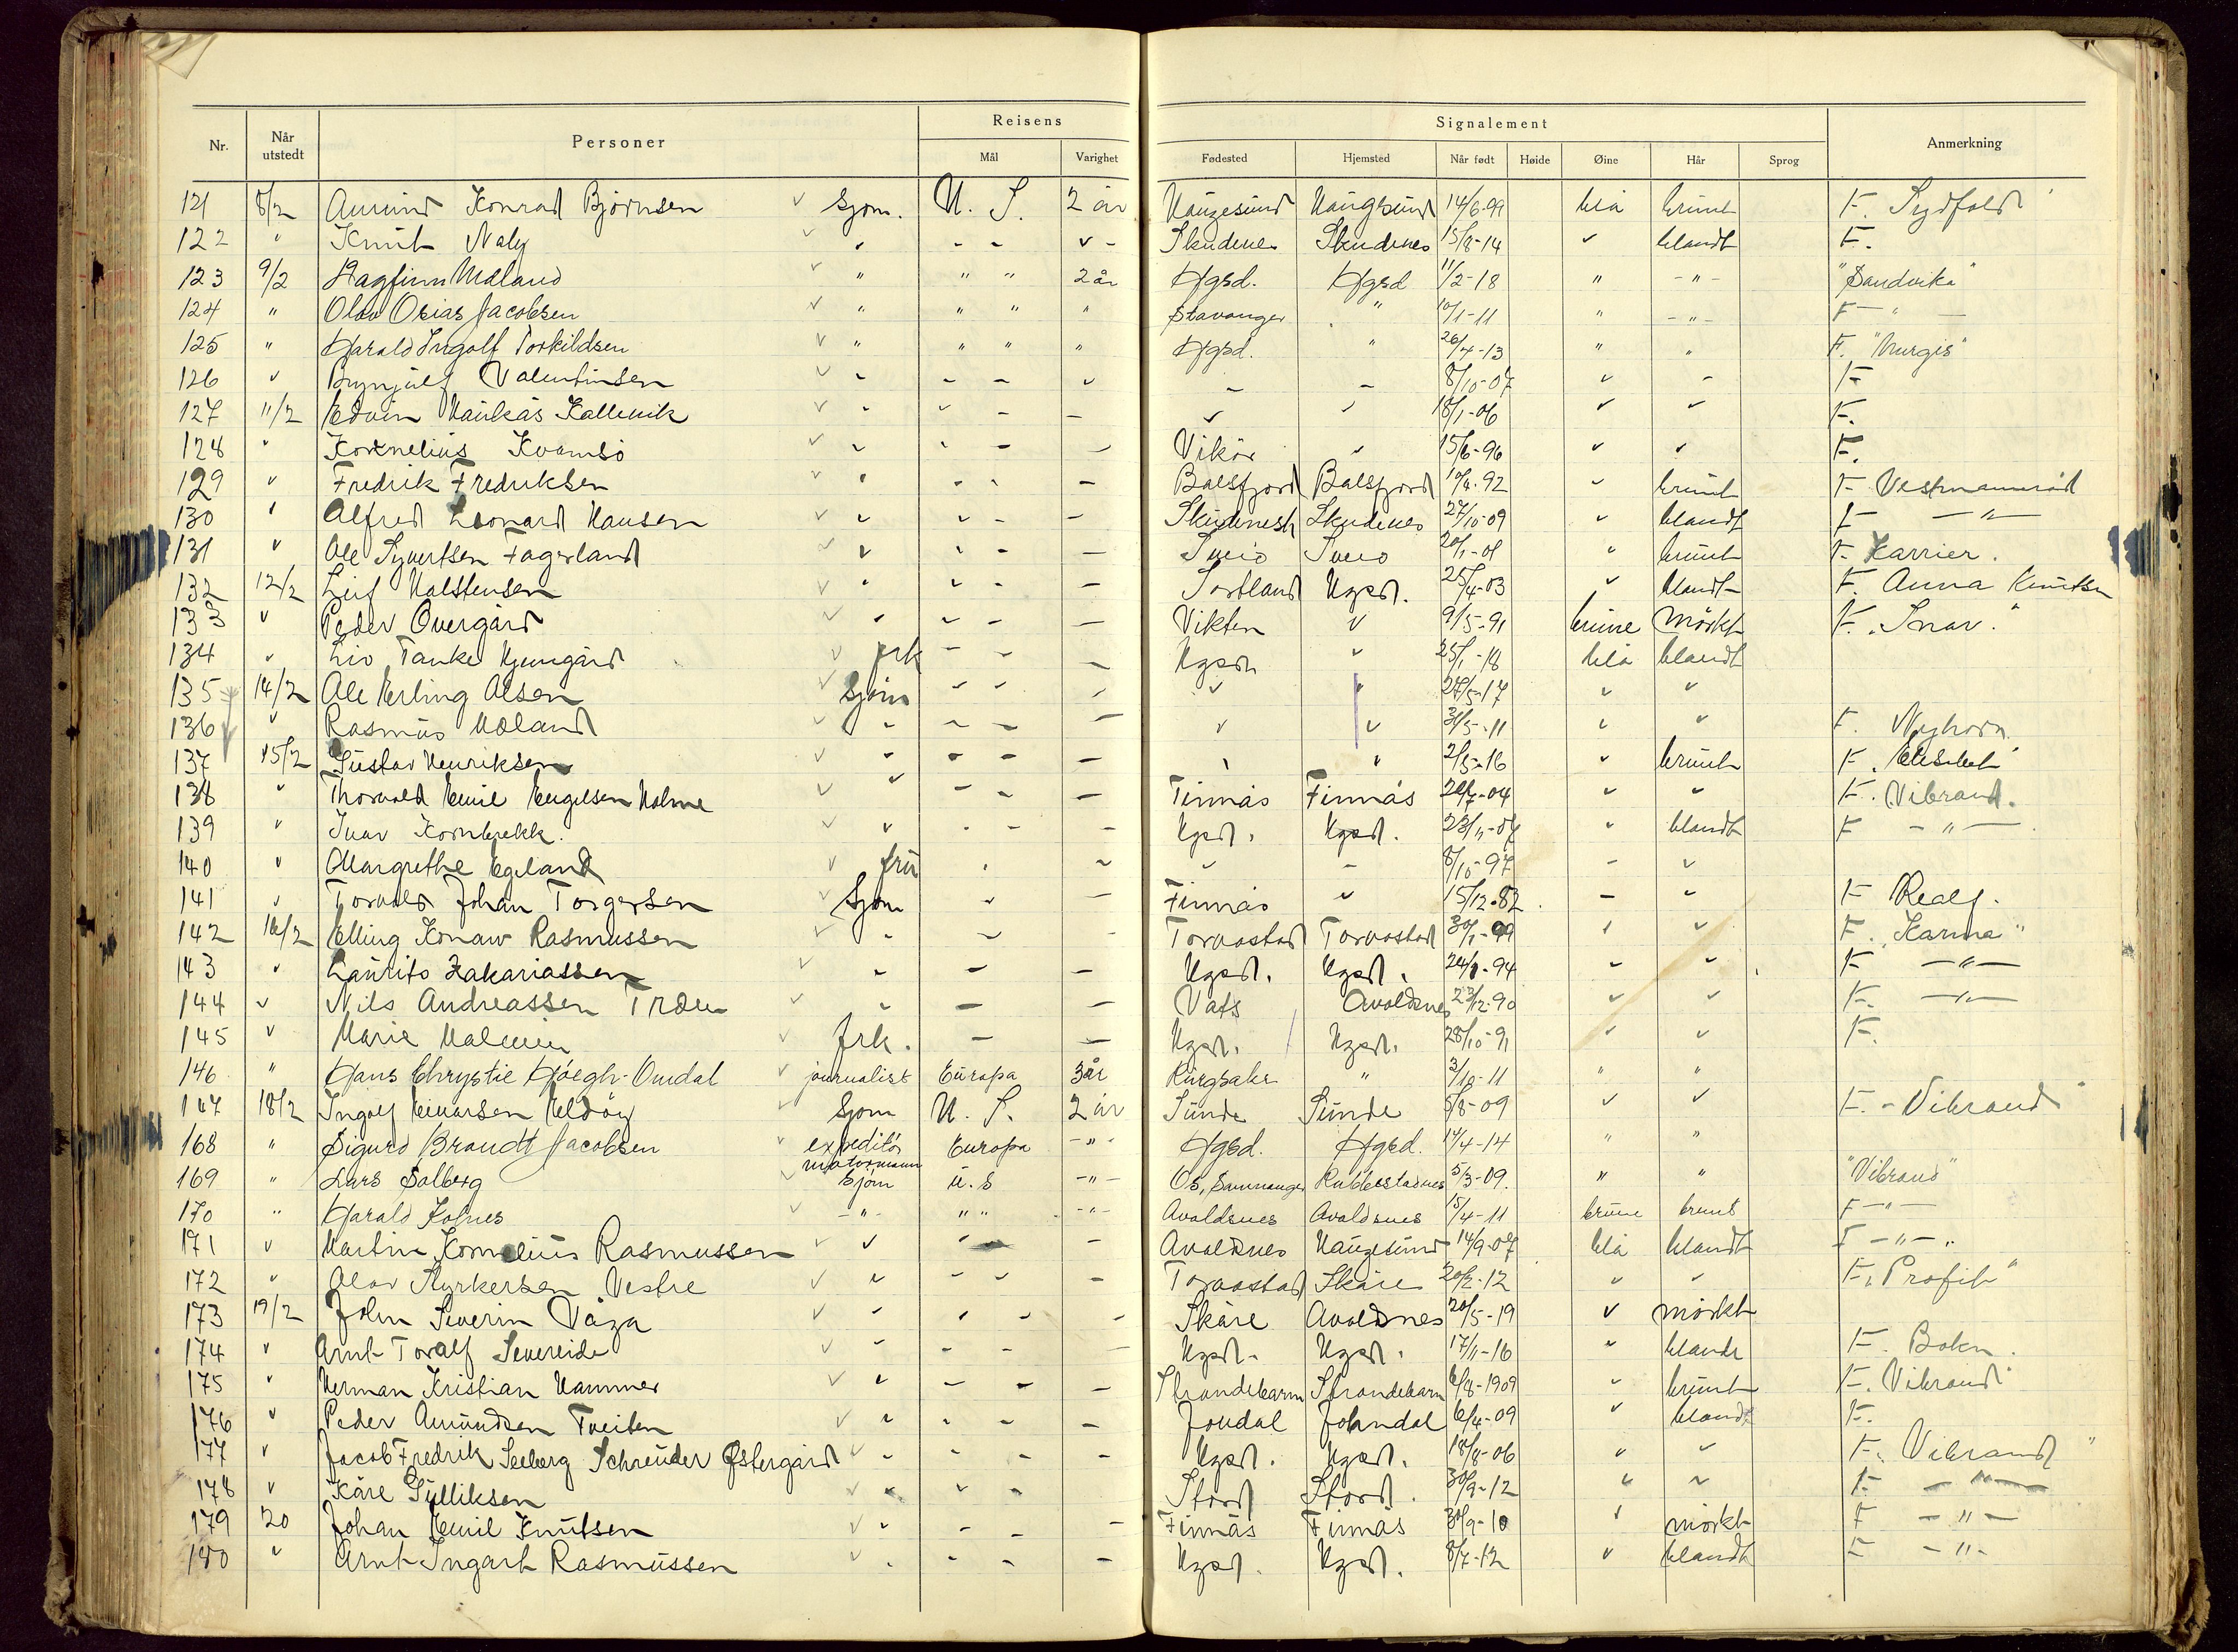 Nr. Når utstedt Personer Reisens Mål Varighet Fødested Hjemsted Signalement Når født Høide Øine Hår Sprog Anmerkning
121 8/2 Amund Konrad Bjørnsen ✓ Sjøm. U. S. 2 år Haugesund Haugesund 14/6-99 blå brunt F. Sydfold
122 " Knut Naly ✓ " - - ✓ - Skudenes Skudenes 15/8-14 ✓ blondt F.
123 9/2 Hagfinn Mæland ✓ " " " 2 år Hgsd. Hgsd 11/2-18 " - " - "Sandvika"
124 " Olav Osias Jacobsen ✓ " " " " Stavanger " 10/1-11 " - " - F - " -
125 " Harald Ingolf Torkildsen ✓ " " " " Hgsd. " 26/4-13 " " F. "Murgis"
126 " Brynjulf Valentinsen ✓ " - - ✓ - - 8/10-07 ✓ - F
127 11/2 Edvin Haukås Kallevik ✓ " " - - ✓ ✓ 18/1-06 ✓ ✓ F.
128 " Kornelius Kvamsö ✓ " " - - Vikör " 15/6-96 ✓ ✓ F.
129 " Fredrik Fredriksen ✓ " - - - Balsfjord Balsfjord 10/4-92 " brunt F Vestmannröd
130 " Alfred Leonard Hansen ✓ " " - - Skudenesh Skudenes 27/10-09 " blondt F - " -
131 " Ole Syvertsen Fagerland ✓ " " - - Sveio Sveio 20/1-01 " brunt F. Karrier.
132 12/2 Leif Halstensen ✓ " " - - Sortland Hgsd. 25/4-03 " blondt F. Anna Knutsen
133 " Peder Overgård ✓ " " - - Vikten " 9/5-91 brune mörkt F. "Snar."
134 " Liv Tanke Hjemgård ✓ frk - - - Hgsd " 25/1-18 blå blondt
135 14/2 Ole Erling Olsen ✓ Sjøm " - - " " 27/5-17 " "
136 " Rasmus Mæland ✓ " - - - " " 31/5-11 " " F. Nyhorn
137 15/2 Gustav Henriksen ✓ " - - - " " 2/5-16 " brunt F. Elisabet
138 " Thorvald Emil Engelsen Holme ✓ " - - - Finnås Finnås 20/7-04 " " F. Vibrand.
139 " Ivar Kornbrekk. ✓ " - - - Hgsd. Hgsd. 23/11-07 " blondt F - " -
140 " Margrethe Egeland ✓ fru " " " - 8/10-97 - "
141 " Torvald Johan Torgersen ✓ Sjøm " - Finnås " 15/12-82 - " F Realf.
142 16/2 Elling Konaw Rasmussen ✓ " " - Torvastad Torvastad 30/1-99 " " F. "Karma"
143 " Laurits Zakariassen ✓ " - - Hgsd. Hgsd. 24/8-94 " " F - " -
144 " Nils Andreassen Træen ✓ " - - Vats Avaldsnes 23/12-90 " " F. - " -
145 " Marie Malmin ✓ frk. - - Hgsd. Hgsd. 28/10-91 " " F.
146 " Hans Chrystie Höegh-Omdal ✓ journalist Europa 3 år " 3/10-11 " "
147 18/2 Ingolf Einarsen Eldöy ✓ Sjøm U. S. 2 år Sunde Sunde 5/8-09 " " F. Vibrand
168 " Sigurd Brandt Jacobsen ✓ expeditör Europa - " - Hgsd. Hgsd. 14/4-14 " "
169 " Lars Solberg ✓ motormann Sjøm U. S - " - Os, Samnanger Rubbestadnes 5/3-09. " " "Vibrand"
170 " Harald Kolnes ✓ - " - " " - " - Avaldsnes Avaldsnes 15/4-11 brune brunt F - " -
171 " Martin Kornelius Rasmussen ✓ " " - - Avaldsnes Haugesund 14/9-07 blå blondt F - " -
172 " Olav Styrkersen Vestre ✓ " - - - Torvastad Skåre 20/2-12 " " F. "Profit"
173 19/2 John Severin Våga ✓ " " - - Skåre Avaldsnes 20/5-19 " mörkt
174 " Arnt Toralf Severeide ✓ " - - - Hgsd. Hgsd. 17/11-16 " blondt F. Bokn.
175 " Herman Kristian Hammer ✓ " - - - Strandebarm Strandebarm 6/8-1909 " brunt F. Vibrand
176 " Peder Amundsen Tveiten ✓ " " - - Jondal Johndal 6/4-09 " blondt F.
177 " Jacob Fredrik Seeberg Schreuder Østergård ✓ " - - - Hgsd. Hgsd. 18/8-06 " " F. Vibrand
178 " Kåre Gulliksen ✓ " " - Stord Stord. 30/9-12 " " F. - " -
179 20 Johan Emil Knutsen ✓ " - - - Finnås Finnås 30/9-10 " mörkt F - " -
180 " Arnt Ingart Rasmussen ✓ " - - - Hgsd. Hgsd. 8/7-12 " blondt F - " -